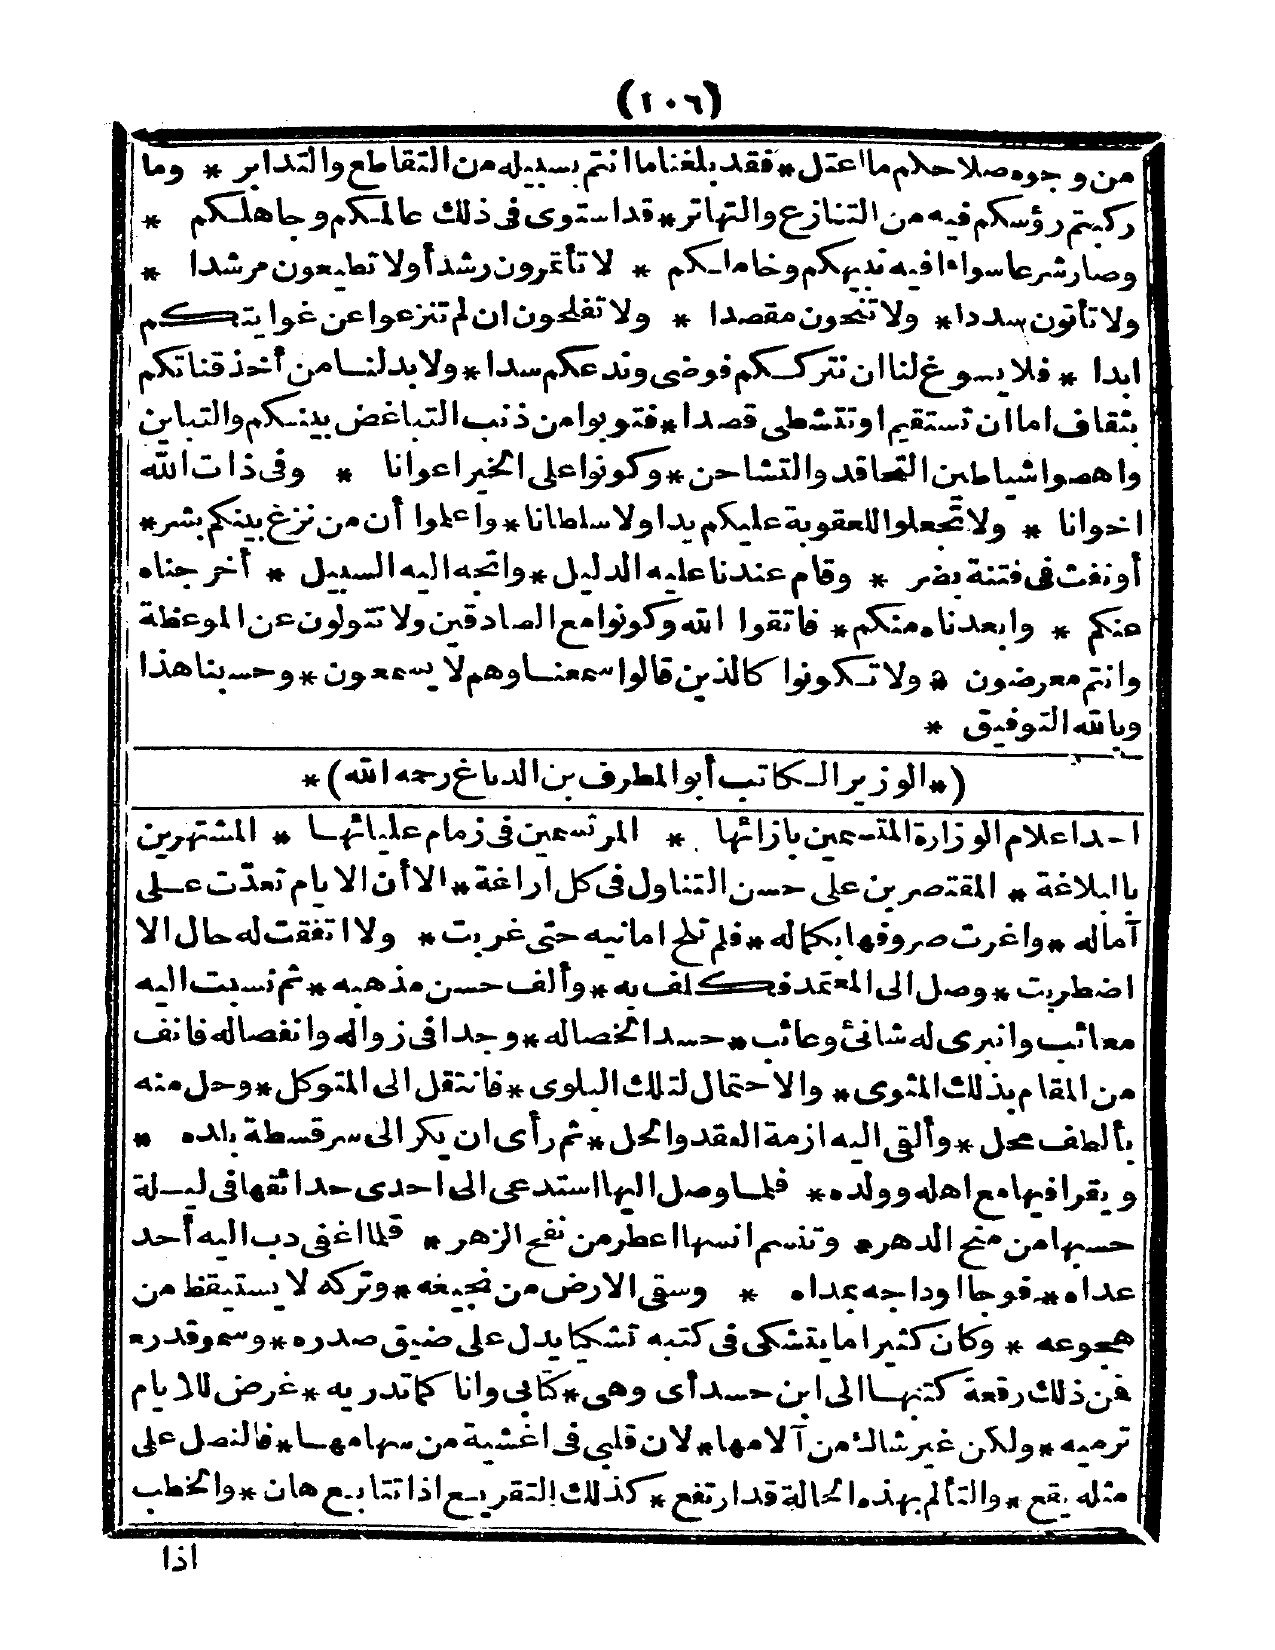 (١٠٦)
من وجوه صلاحكم ما اعتل * فقد بلغنا ما انتم بسبيله من التقاطع والتدابر * وما
ركبتم رؤسكم فيه من التنازع والتهاتر * قد استوى فى ذلك عالمكم وجاهلكم *
وصار شرعا سواء فيه نبيهكم وخاملكم * لا تأتمرون رشدا ولا تطيعون مرشدا *
ولا تأتون سددا * ولا تنحون مقصدا * ولا تفلحون ان لم تنزعوا عن غوايتكم
ابدا * فلا يسوغ لنا ان نترككم فوضى وندعكم سدا * ولا بد لنا من أخذ قناتكم
بثقاف اما ان تستقيم او تتشظى قصدا * فتوبوا من ذنب التباغض بينكم والتباين
واهصوا شياطين التحاقد والتشاحن * وكونوا على الخير اعوانا * وفى ذات الله
اخوانا * ولا تجعلوا للعقوبة عليكم يدا ولا سلطانا * واعلموا أن من نزغ بينكم بشر *
أو نفث فى فتنة بضر * وقام عندنا عليه الدليل * واتجه اليه السبيل * أخرجناه
عنكم * وابعدناه منكم * فاتقوا الله وكونوا مع الصادقين ولا تتولون عن الموعظة
وانتم معرضون * ولا تكونوا كالذين قالوا سمعنا وهم لا يسمعون * وحسبنا هذا
وبالله التوفيق *
(* الوزير الكاتب أبو المطرف بن الدباغ رحمه الله) *
احد اعلام الوزارة المتسمين بازائها * المرتسمين فى زمام عليائها * المشتهرين
بالبلاغة * المقتصرين على حسن التناول فى كل اراغة * الا أن الايام تعدّت على
آماله * واغرت صروفها بكماله * فلم تلح امانيه حتى غربت * ولا اتفقت له حال الا
اضطربت * وصل الى المعتمد فكلف به * وألف حسن مذهبه * ثم نسبت اليه
معائب وانبرى له شانئ وعائب * حسدا لخصاله * وجدا فى زواله وانفصاله فانف
من المقام بذلك المثوى * والاحتمال لتلك البلوى * فانتقل الى المتوكل * وحل منه
بألطف محل * وألقى اليه ازمة العقد والحل * ثم رأى ان يكر الى سرقسطة بلده *
ويقر افيها مع اهله وولده * فلما وصل اليها استدعى الى احدى حدائقها فى ليلة
حسبها من منح الدهر * وتنسم انسها اعطر من نفح الزهر * فلما اغفى دب اليه أحد
عداه * فوجا اوداجه بمداه * وسقى الارض من نجيعه * وتركه لا يستيقظ من
هجوعه * وكان كثيرا ما يتشكى فى كتبه تشكيا يدل على ضيق صدره * وسمو قدره
فن ذلك رقعة كتبها الى ابن حسدأى وهى * كتابى وانا كما تدريه * غرض للايام
ترميه * ولكن غير شاك من آلامها * لان قلبى فى اغشية من سهامها * فالنصل على
مثله يقع * والتألم بهذه الحالة قد ارتفع * كذلك التقريع اذا تتابع هان * والخطب
اذا